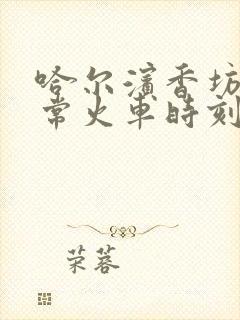 哈尔滨香坊
常火车時刻
荣蓉